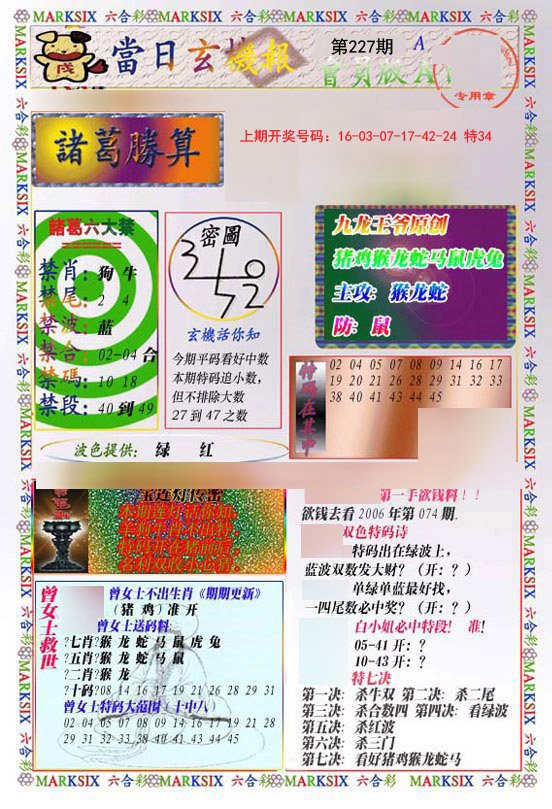 MARKSIX 六合彩 MARKSIX 六合彩 MARKSIX 六合彩 MARKSIX 六合彩
當日玄機報
第227期 A
會員版A
专用章
諸葛勝算
上期开奖号码：16-03-07-17-42-24 特34
諸葛六大禁
禁肖：狗 牛
禁尾：2 4
禁波：蓝
禁合：02-04 合
禁碼：10 18
禁段：40 到 49
密圖
玄機話你知
今期平码看好中数
本期特码追小数，
但不排除大数
27 到 47 之数
九龙王爷原创
猪鸡猴龙蛇马鼠虎兔
主攻：猴龙蛇
防：鼠
特码在其中
02 04 05 07 08 09 14 16 17
19 20 21 26 28 29 31 32 33
38 40 41 43 44 45
波色提供： 绿 红
第一手欲钱料！！
欲钱去看 2006 年第 074 期.
双色特码诗
特码出在绿波上，
蓝波双数发大财？（开：？）
单绿单蓝最好找，
一四尾数必中奖？（开：？）
白小姐必中特段！ 准！
05-41 开：？
10-43 开：？
特七决
第一决：杀牛双 第二决：杀二尾
第三决：杀合数四 第四决：看绿波
第五决：杀红波
第六决：杀三门
第七决：看好猪鸡猴龙蛇马
曾女士救世
曾女士不出生肖《期期更新》
（猪 鸡）准 开
曾女士送码料
?七肖?猴 龙 蛇 马 鼠 虎 兔
?五肖?猴 龙 蛇 马 鼠
?二肖?猴 龙
?十码?08 14 16 17 19 21 26 28 29 31
曾女士特码大范围（十中八）
02 04 05 07 08 09 14 16 17 19 21 28
29 31 32 33 38 40 41 43 44 45
MARKSIX 六合彩 MARKSIX 六合彩 MARKSIX 六合彩 MARKSIX 六合彩